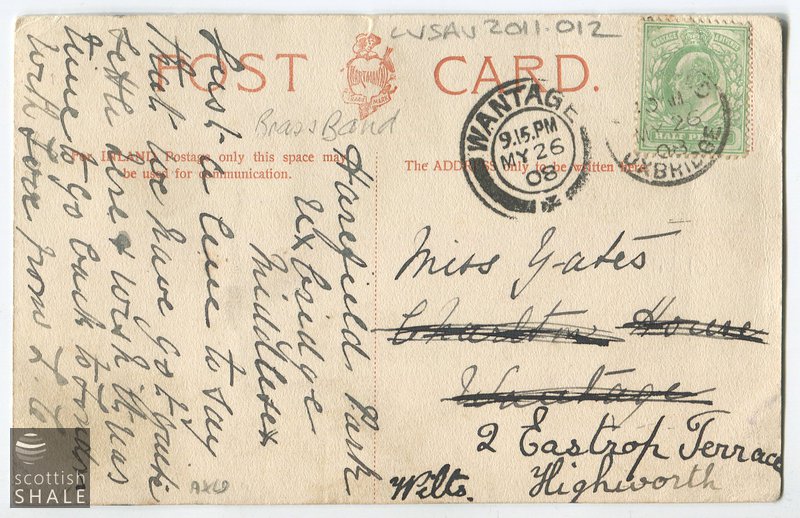 LVSAV2011.012
POST CARD.
Brass Band
For INLAND Postage only this space may
be used for communication.
The ADDRESS only to be written here
WANTAGE
9.15.PM
MY 26
08
UXBRIDGE
26
08
HALF
Harefield Park
Uxbridge
Middlesex
Just a line to say
that we have got quite
settled here & wish it was
time to go back to
with love from
Miss Yates
Charlton House
Wantage
2 Eastrop Terrace
Highworth
Wilts.
scottish
SHALE